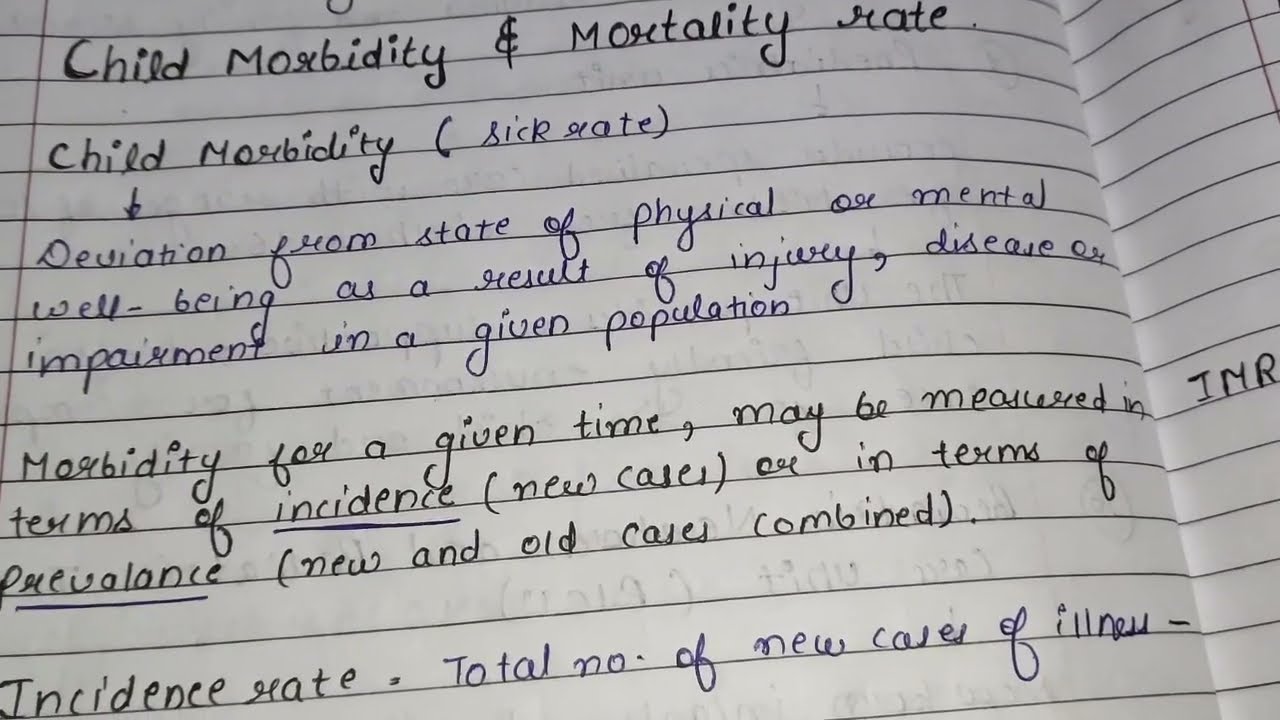 Child Morbidity & Mortality rate.
Child Morbidity ( sick rate)
Deviation from state of physical or mental
well-being as a result of injury, disease or
impairment in a given population
IMR
Morbidity for a given time, may be measured in
terms of incidence (new cases) or in terms of
Prevalance (new and old cases combined).
Incidence rate = Total no. of new cases of illness -